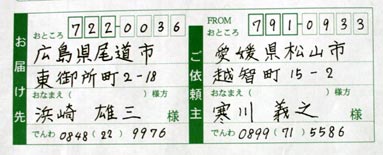 お届け先
おところ 722-0036
広島県尾道市
東御所町2-18
おなまえ ( ) 様方
浜崎 雄三 様
でんわ 0848 (22) 9976
ご依頼主
FROM
おところ 791-0933
愛媛県松山市
越智町15-2
おなまえ ( ) 様方
寒川 義之 様
でんわ 0899 (71) 5586